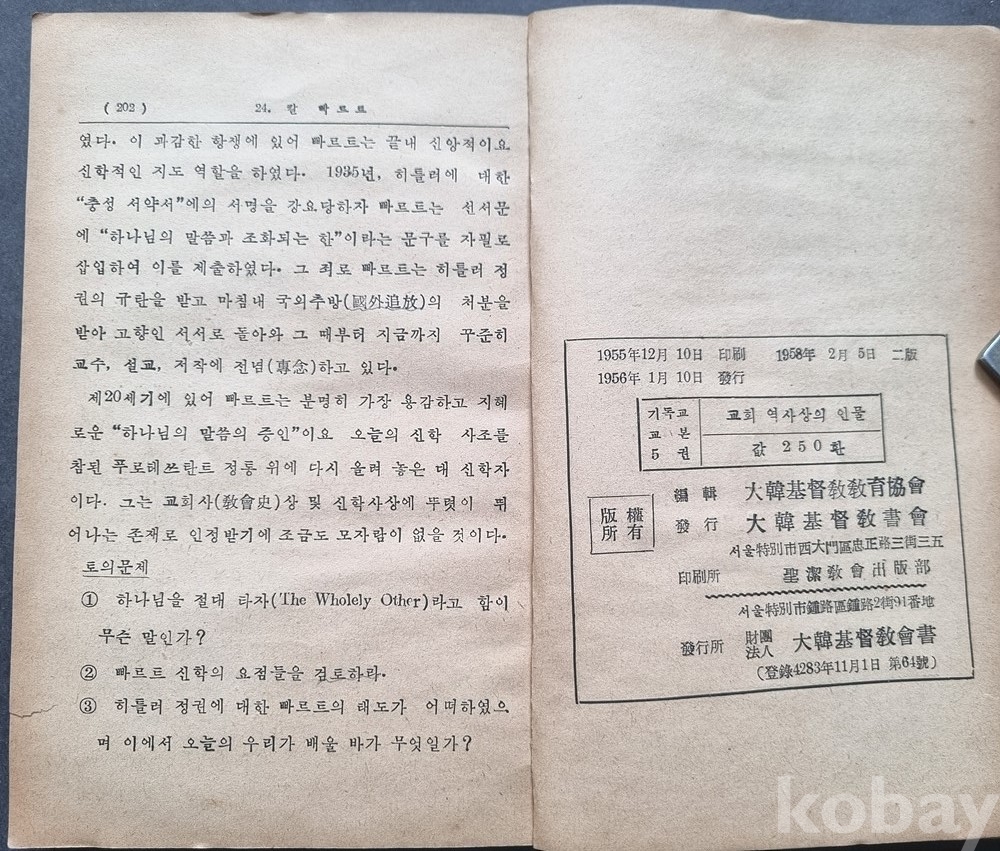 ( 202 ) 24. 칼 빠르트
였다. 이 과감한 항쟁에 있어 빠르트는 끝내 신앙적이요
신학적인 지도 역할을 하였다. 1935년, 히틀러에 대한
“충성 서약서”에의 서명을 강요당하자 빠르트는 선서문
에 “하나님의 말씀과 조화되는 한”이라는 문구를 자필로
삽입하여 이를 제출하였다. 그 죄로 빠르트는 히틀러 정
권의 규탄을 받고 마침내 국외추방(國外追放)의 처분을
받아 고향인 서서로 돌아와 그 때부터 지금까지 꾸준히
교수, 설교, 저작에 전념(專念)하고 있다.
제20세기에 있어 빠르트는 분명히 가장 용감하고 지혜
로운 “하나님의 말씀의 증인”이요 오늘의 신학 사조를
참된 푸로테쓰탄트 정통 위에 다시 올려 놓은 대 신학자
이다. 그는 교회사(敎會史)상 및 신학사상에 뚜렷이 뛰
어나는 존재로 인정받기에 조금도 모자람이 없을 것이다.
토의문제
① 하나님을 절대 타자(The Wholely Other)라고 함이
무슨 말인가?
② 빠르트 신학의 요점들을 검토하라.
③ 히틀러 정권에 대한 빠르트의 태도가 어떠하였으
며 이에서 오늘의 우리가 배울 바가 무엇일가?
1955年12月10日 印刷 1958年 2月 5日 二版
1956年 1月10日 發行
기독교 교본 5권
교회 역사상의 인물
값 250환
版權所有
編輯 大韓基督敎敎育協會
發行 大韓基督敎書會
서울特別市西大門區忠正路三街三五
印刷所 聖潔敎會出版部
서울特別市鍾路區鍾路2街91番地
發行所 財團法人 大韓基督敎會書
(登錄4283年11月1日 第64號)
kobay